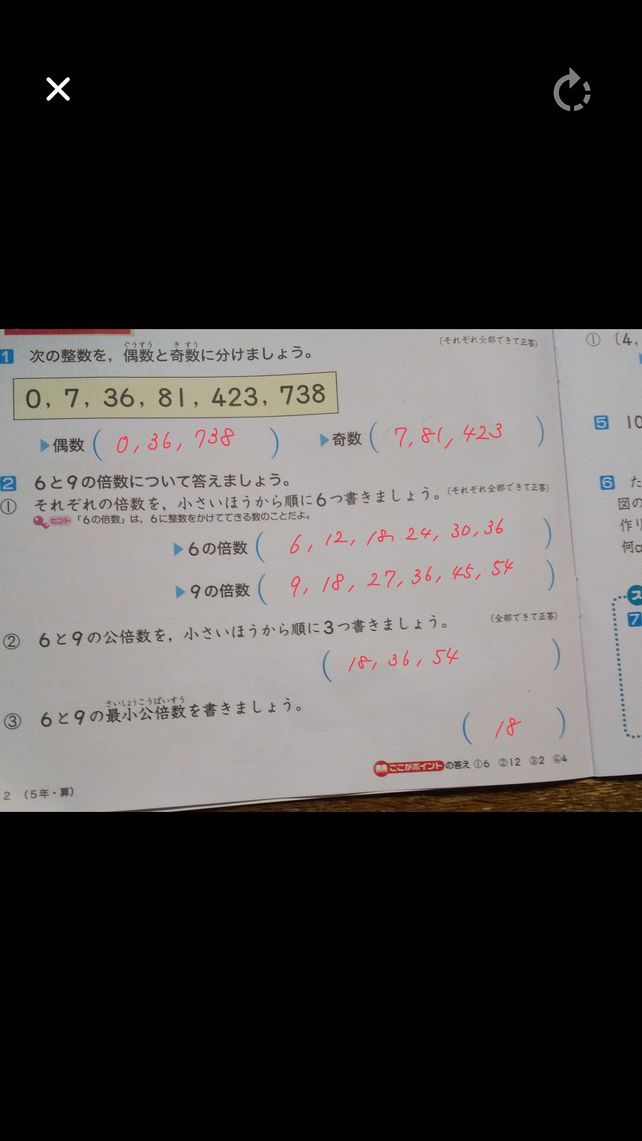 1 次の整数を，偶数と奇数に分けましょう。
ぐうすう きすう
(それぞれ全部できて正答)
0, 7, 36, 81, 423, 738
▶偶数 ( 0, 36, 738 ) ▶奇数 ( 7, 81, 423 )
2 6と9の倍数について答えましょう。
① それぞれの倍数を，小さいほうから順に6つ書きましょう。(それぞれ全部できて正答)
ヒント 「6の倍数」は，6に整数をかけてできる数のことだよ。
▶6の倍数 ( 6, 12, 18, 24, 30, 36 )
▶9の倍数 ( 9, 18, 27, 36, 45, 54 )
② 6と9の公倍数を，小さいほうから順に3つ書きましょう。 (全部できて正答)
( 18, 36, 54 )
③ 6と9の最小公倍数を書きましょう。
さいしょうこうばいすう
( 18 )
ここがポイントの答え ①6 ②12 ③2 ④4
2 (5年・算)
① (4,
5 10
6 た
図の
作り
何c
ス
7